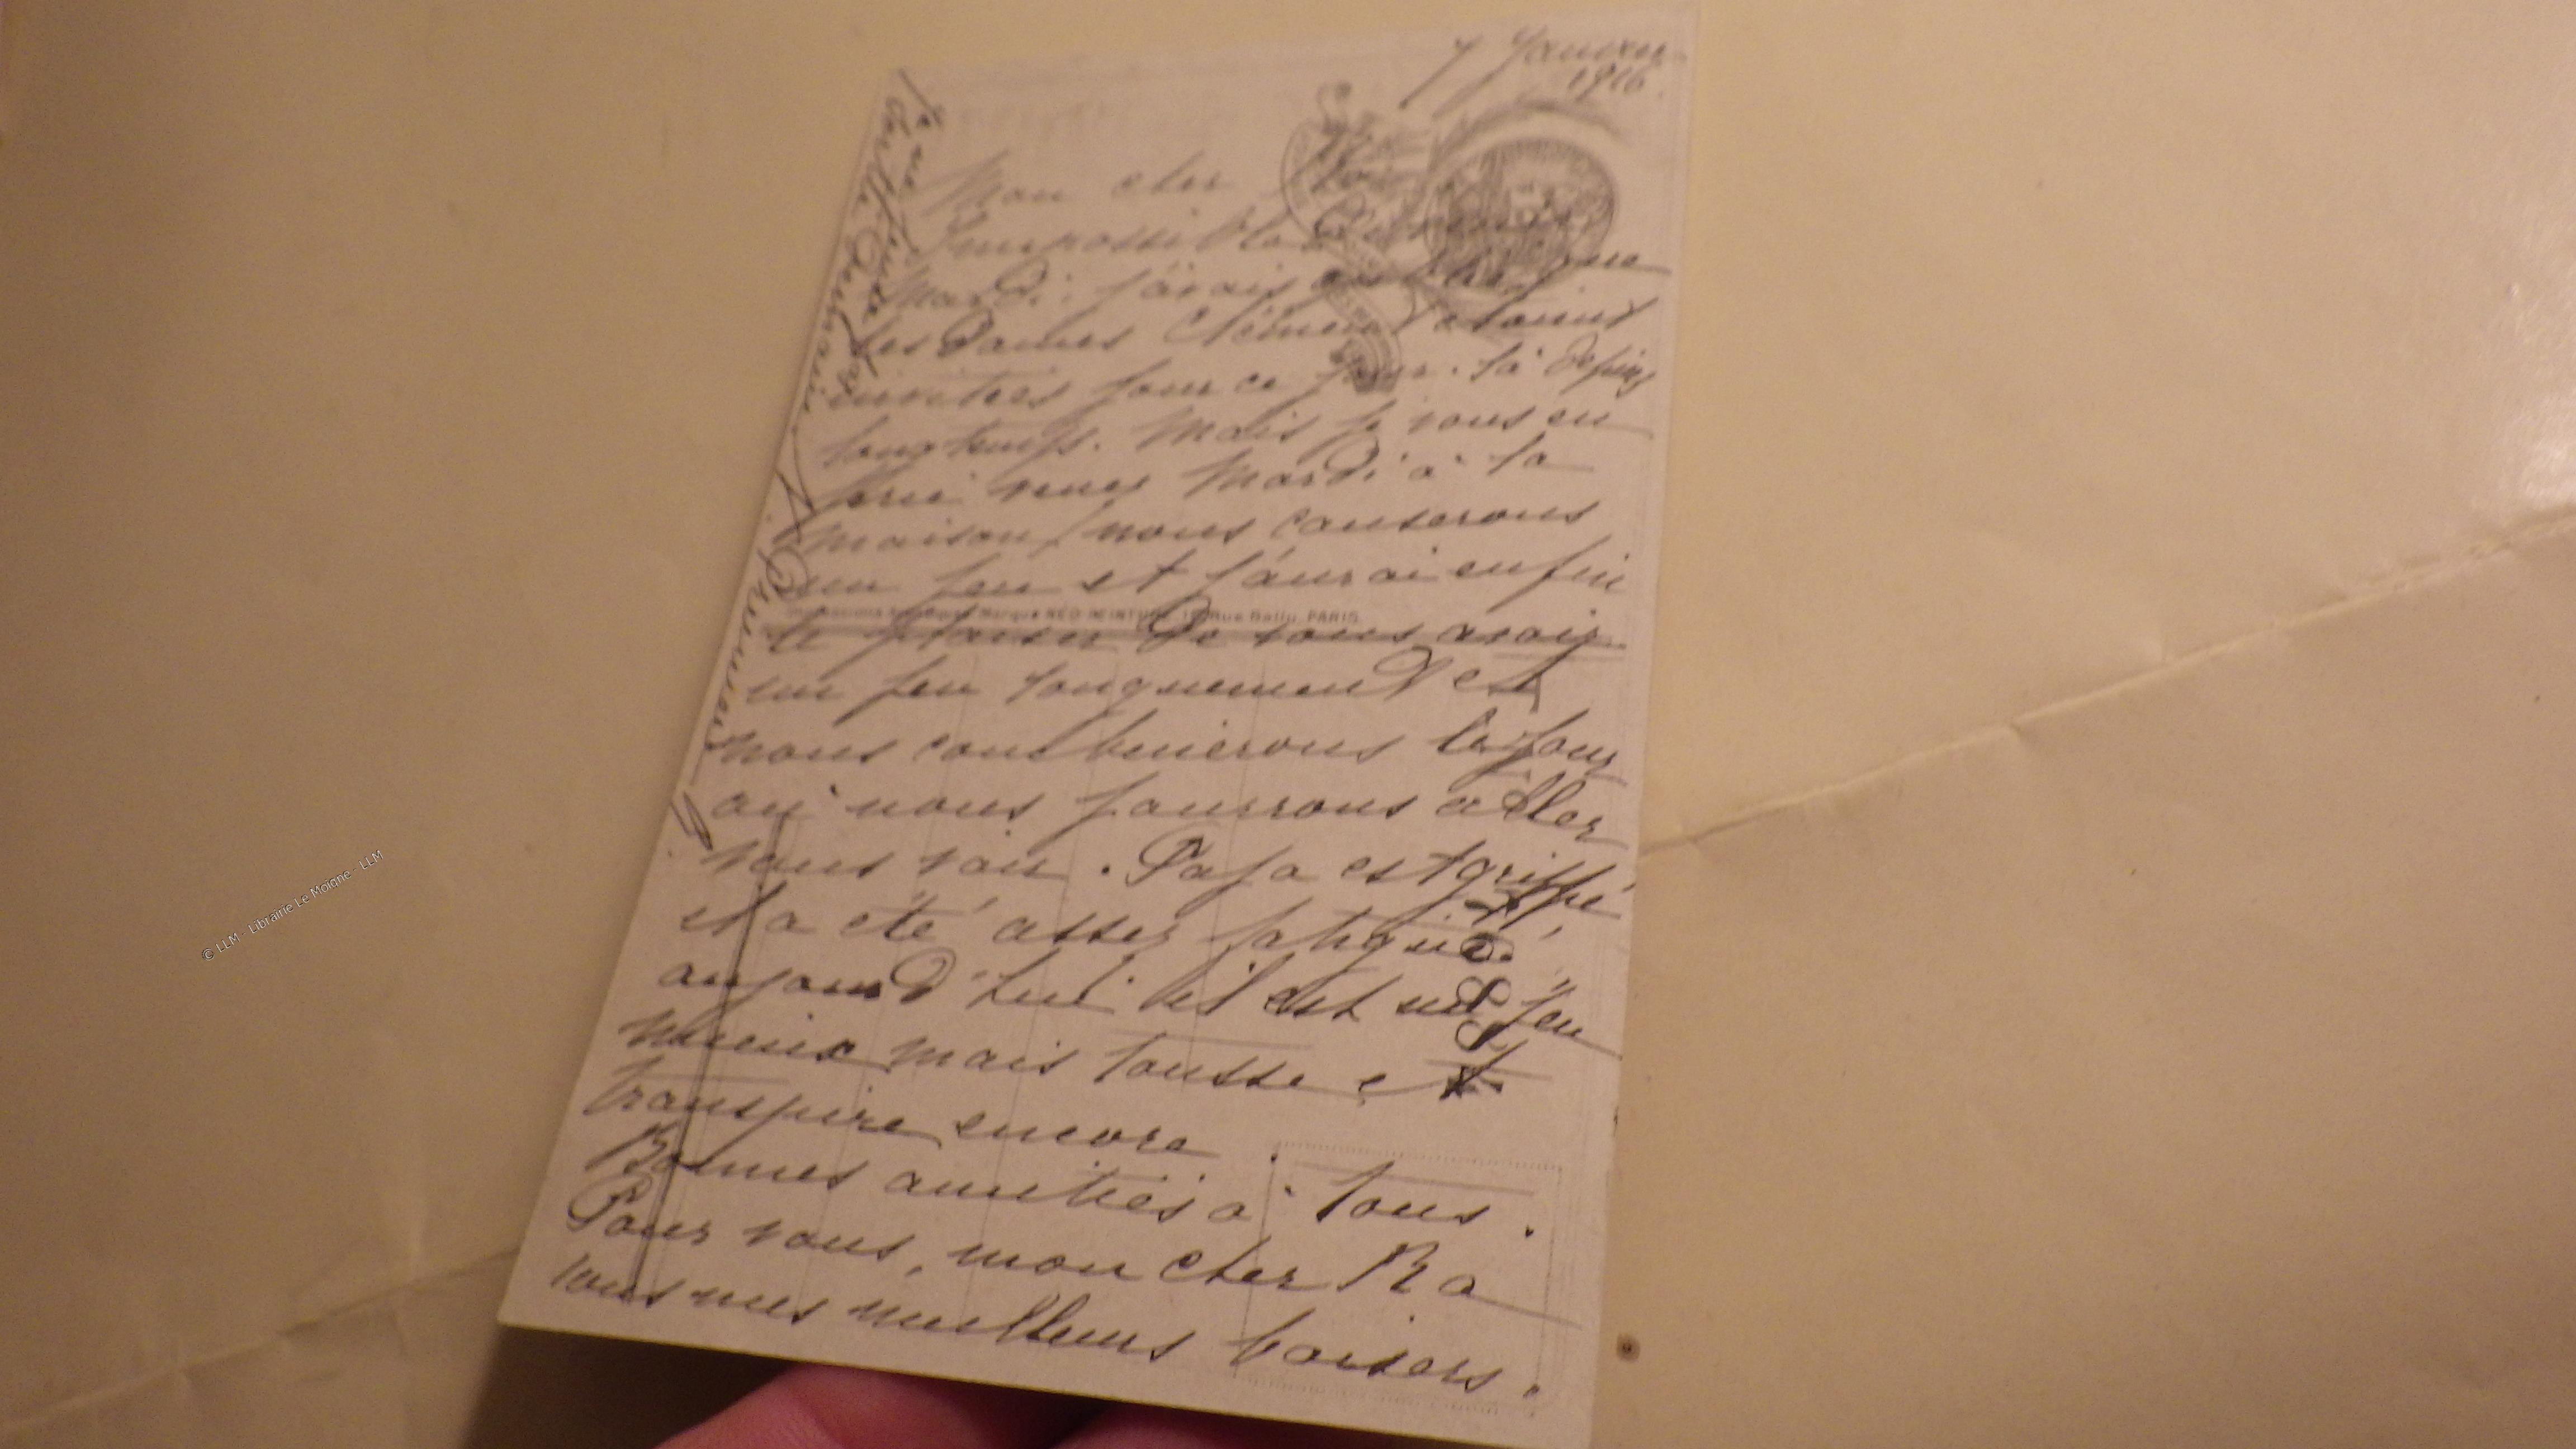 7 Janvier
1916.
Mon cher Ra
Impossible de venir
Mardi, j'avais oublié que
les Dames Clément étaient
invitées pour ce jour-là depuis
longtemps. Mais je vous en
prie venez Mardi à la
maison, nous causerons
un peu et j'aurai enfin
le plaisir de vous avoir
un peu longuement et
nous combinerons le jour
où nous pourrons aller
vous voir. Papa est grippé
et a été assez fatigué.
aujourd'hui il est un peu
mieux mais tousse et
transpire encore
Bonnes amitiés à tous.
Pour vous, mon cher Ra
tous mes meilleurs baisers.
Marque NÉO-PEINTURE, Rue Ballu, PARIS
Je ne puis
© LLM - Librairie Le Moigne - LLM